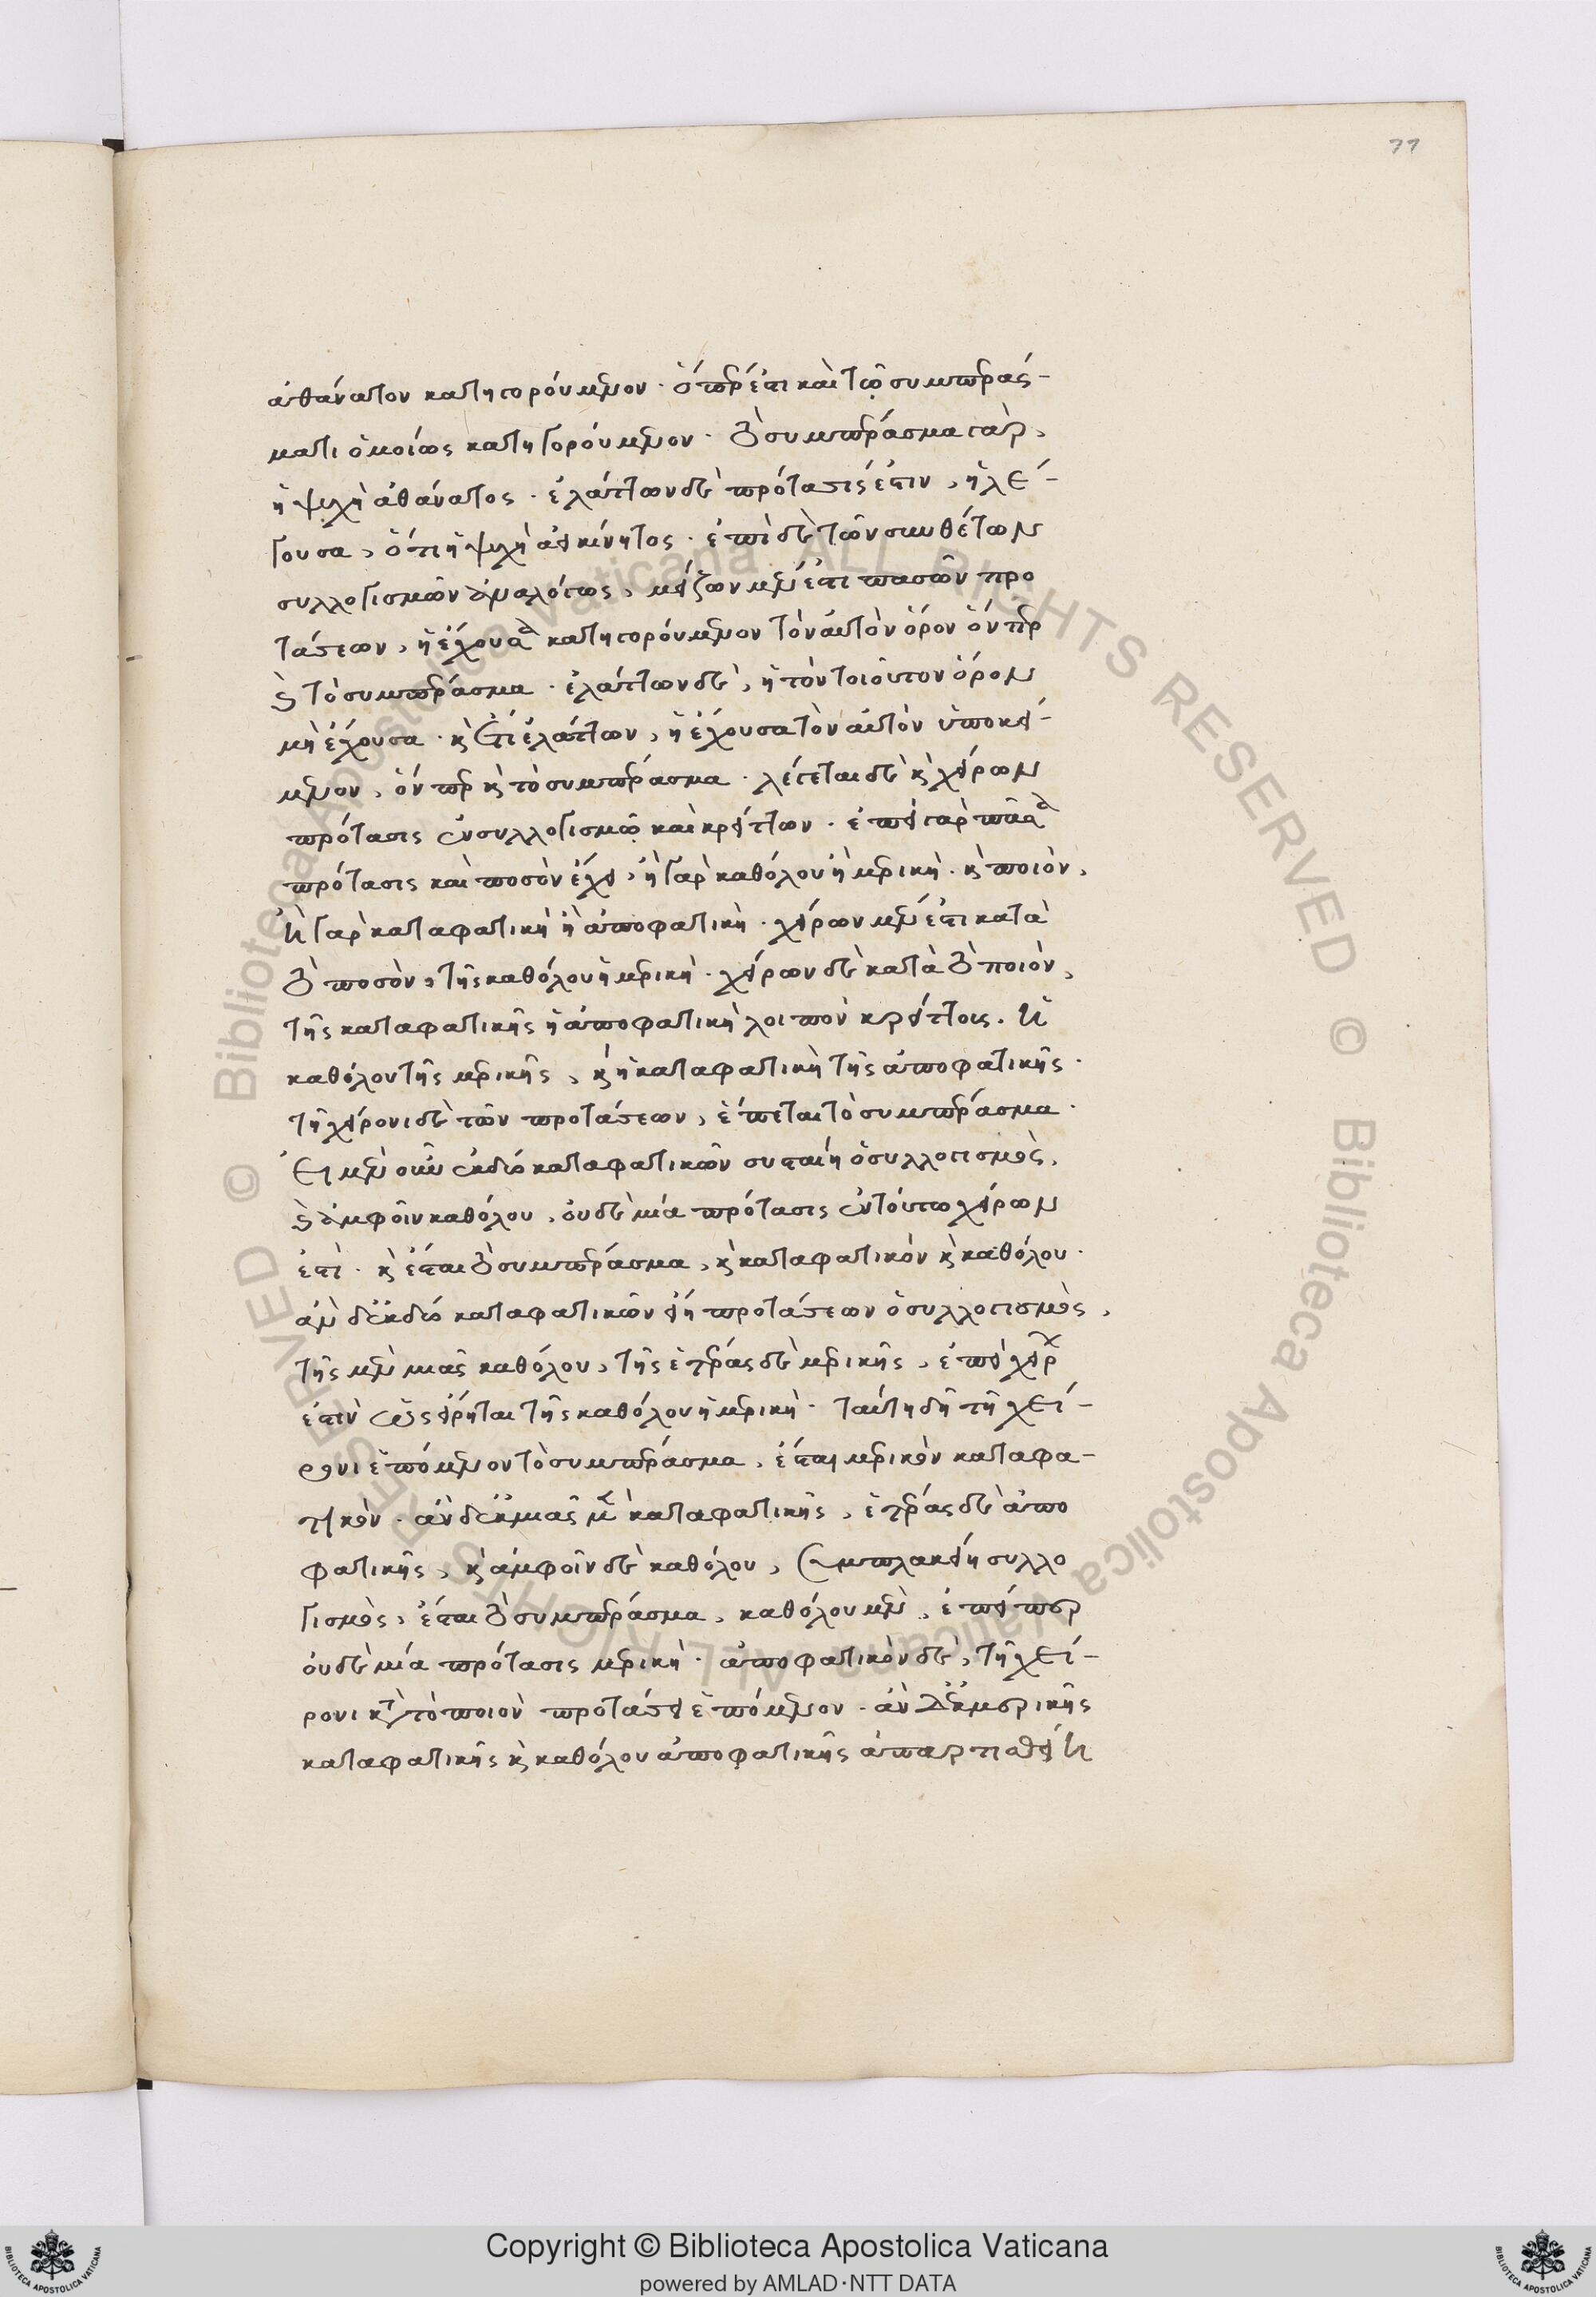 77
ἀθάνατον κατηγορούμενον · ὅπερ ἐστὶ καὶ τῷ συμπεράσ-
ματι ὁμοίως κατηγορούμενον · τὸ συμπέρασμα γὰρ,
ἡ ψυχὴ ἀθάνατος · ἐλάττων δὲ πρότασίς ἐστιν, ἡ λέ-
γουσα, ὅτι ἡ ψυχὴ ἀεικίνητος · ἐπὶ δὲ τῶν συνθέτων
συλλογισμῶν ἀναλόγως, μείζων μέν ἐστι πασῶν προ
τάσεων, ἡ ἔχουσα κατηγορούμενον τὸν αὐτὸν ὅρον ὅνπερ
καὶ τὸ συμπέρασμα · ἐλάττων δὲ, ἡ τὸν τοιοῦτον ὅρον
μὴ ἔχουσα · καὶ ἔτι ἐλάττων, ἡ ἔχουσα τὸν αὐτὸν ὑποκεί-
μενον, ὅνπερ καὶ τὸ συμπέρασμα · λέγεται δὲ καὶ χείρων
πρότασις ἐν συλλογισμῷ καὶ κρείττων · ἐπεὶ γὰρ πᾶσα
πρότασις καὶ ποσὸν ἔχει, ἢ γὰρ καθόλου ἢ μερικὴ · καὶ ποιὸν,
ἢ γὰρ καταφατικὴ ἢ ἀποφατικὴ · χείρων μέν ἐστι κατὰ
τὸ ποσὸν, τῆς καθόλου ἡ μερικὴ · χείρων δὲ κατὰ τὸ ποιὸν,
τῆς καταφατικῆς ἡ ἀποφατικὴ λοιπὸν κρείττους · ἡ
καθόλου τῆς μερικῆς, καὶ ἡ καταφατικὴ τῆς ἀποφατικῆς ·
τῇ χείρονι δὲ τῶν προτάσεων, ἕπεται τὸ συμπέρασμα ·
εἰ μὲν οὖν ἐκ δύο καταφατικῶν συσταίη ὁ συλλογισμὸς,
καὶ ἀμφοῖν καθόλου, οὐδεμία πρότασις ἐν τούτῳ χείρων
ἐστὶ · καὶ ἔσται τὸ συμπέρασμα, καὶ καταφατικὸν καὶ καθόλου ·
ἂν δ' ἐκ δύο καταφατικῶν εἴη προτάσεων ὁ συλλογισμὸς,
τῆς μὲν μιᾶς καθόλου, τῆς ἑτέρας δὲ μερικῆς, ἐπεὶ χείρων
ἐστὶν ὡς εἴρηται τῆς καθόλου ἡ μερικὴ · ταύτῃ δὴ τῇ χεί-
ρονι ἑπόμενον τὸ συμπέρασμα, ἔσται μερικὸν καταφα-
τικὸν · ἂν δ' ἐκ μιᾶς μὲν καταφατικῆς, ἑτέρας δὲ ἀπο
φατικῆς, καὶ ἀμφοῖν δὲ καθόλου, συμπλακείη συλλο
γισμὸς, ἔσται τὸ συμπέρασμα, καθόλου μὲν, ἐπείπερ
οὐδεμία πρότασις μερικὴ · ἀποφατικὸν δὲ, τῇ χεί-
ρονι κατὰ τὸ ποιὸν προτάσει ἑπόμενον · ἂν δ' ἐκ μερικῆς
καταφατικῆς καὶ καθόλου ἀποφατικῆς ἀπαρτισθείη
Copyright © Biblioteca Apostolica Vaticana
powered by AMLAD·NTT DATA